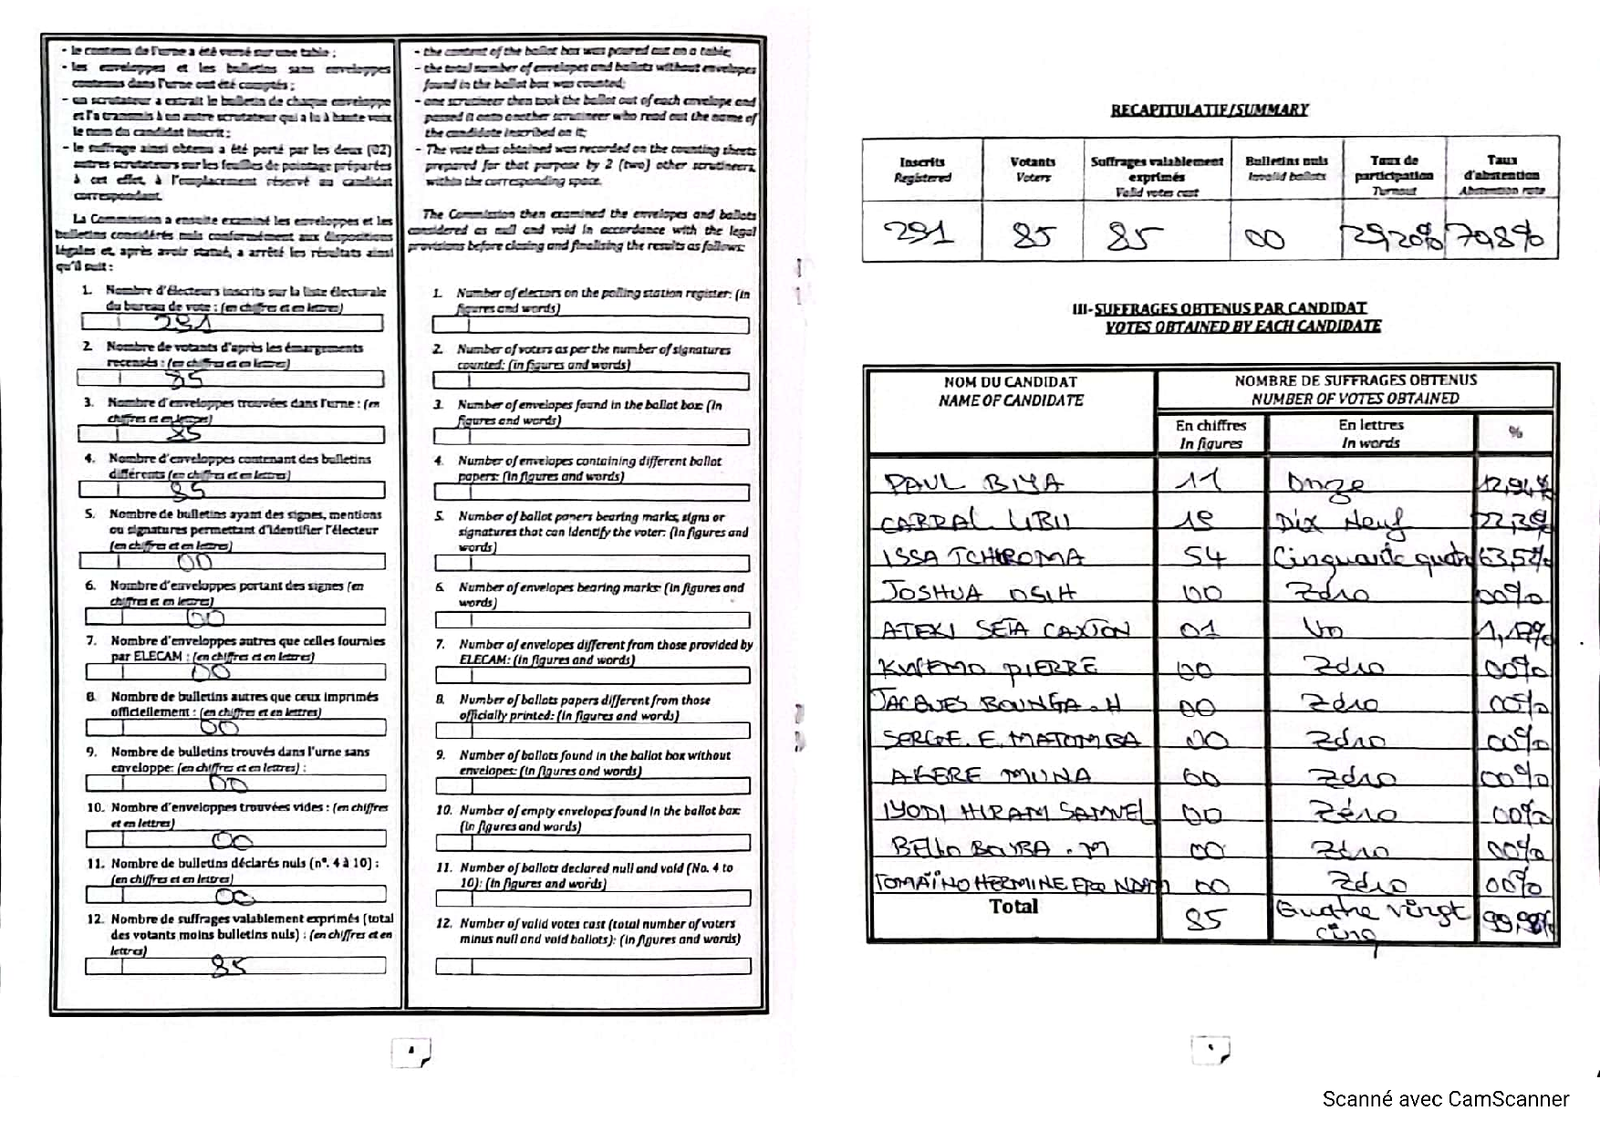 - le contenu de l'urne a été versé sur une table ;
- les enveloppes et les bulletins sans enveloppes
contenus dans l'urne ont été comptés ;
- un scrutateur a extrait le bulletin de chaque enveloppe
et l'a transmis à un autre scrutateur qui a lu à haute voix
le nom du candidat inscrit ;
- le suffrage ainsi obtenu a été porté par les deux (02)
autres scrutateurs sur les feuilles de pointage préparées
à cet effet, à l'emplacement réservé au candidat
correspondant.
La Commission a ensuite examiné les enveloppes et les
bulletins considérés nuls conformément aux dispositions
légales et, après avoir statué, a arrêté les résultats ainsi
qu'il suit :
1. Nombre d'électeurs inscrits sur la liste électorale
du bureau de vote : (en chiffres et en lettres)
291
2. Nombre de votants d'après les émargements
recensés : (en chiffres et en lettres)
85
3. Nombre d'enveloppes trouvées dans l'urne : (en
chiffres et en lettres)
85
4. Nombre d'enveloppes contenant des bulletins
différents (en chiffres et en lettres)
85
5. Nombre de bulletins ayant des signes, mentions
ou signatures permettant d'identifier l'électeur
(en chiffres et en lettres)
00
6. Nombre d'enveloppes portant des signes (en
chiffres et en lettres)
00
7. Nombre d'enveloppes autres que celles fournies
par ELECAM : (en chiffres et en lettres)
00
8. Nombre de bulletins autres que ceux imprimés
officiellement : (en chiffres et en lettres)
00
9. Nombre de bulletins trouvés dans l'urne sans
enveloppe: (en chiffres et en lettres) :
00
10. Nombre d'enveloppes trouvées vides : (en chiffres
et en lettres)
00
11. Nombre de bulletins déclarés nuls (n°. 4 à 10) :
(en chiffres et en lettres)
00
12. Nombre de suffrages valablement exprimés (total
des votants moins bulletins nuls) : (en chiffres et en
lettres)
85
- the content of the ballot box was poured out on a table;
- the total number of envelopes and ballots without envelopes
found in the ballot box was counted;
- one scrutineer then took the ballot out of each envelope and
passed it onto another scrutineer who read out the name of
the candidate inscribed on it;
- The vote thus obtained was recorded on the counting sheets
prepared for that purpose by 2 (two) other scrutineers,
within the corresponding space.
The Commission then examined the envelopes and ballots
considered as null and void in accordance with the legal
provisions before closing and finalising the results as follows:
1. Number of electors on the polling station register: (in
figures and words)
2. Number of voters as per the number of signatures
counted: (in figures and words)
3. Number of envelopes found in the ballot box: (in
figures and words)
4. Number of envelopes containing different ballot
papers: (in figures and words)
5. Number of ballot papers bearing marks, signs or
signatures that can identify the voter: (in figures and
words)
6. Number of envelopes bearing marks: (in figures and
words)
7. Number of envelopes different from those provided by
ELECAM: (in figures and words)
8. Number of ballots papers different from those
officially printed: (in figures and words)
9. Number of ballots found in the ballot box without
envelopes: (in figures and words)
10. Number of empty envelopes found in the ballot box:
(in figures and words)
11. Number of ballots declared null and void (No. 4 to
10): (in figures and words)
12. Number of valid votes cast (total number of voters
minus null and void ballots): (in figures and words)
RECAPITULATIF/SUMMARY
Inscrits Votants Suffrages valablement Bulletins nuls Taux de Taux
Registered Voters exprimés Invalid ballots participation d'abstention
Valid votes cast Turnout Abstention rate
291 85 85 00 29,20% 70,8%
III- SUFFRAGES OBTENUS PAR CANDIDAT
VOTES OBTAINED BY EACH CANDIDATE
NOM DU CANDIDAT NOMBRE DE SUFFRAGES OBTENUS
NAME OF CANDIDATE NUMBER OF VOTES OBTAINED
En chiffres En lettres %
In figures In words
PAUL BIYA 11 Onze 12,94%
CABRAL LIBII 19 Dix Neuf 22,35%
ISSA TCHIROMA 54 Cinquante quatre 63,52%
JOSHUA OSIH 00 Zéro 00%
ATEKI SETA CAXTON 01 Un 1,17%
KWEMO PIERRE 00 Zéro 00%
JACQUES BOUNGA.H 00 Zéro 00%
SERGE. E. MATOMBA 00 Zéro 00%
AKERE MUNA 00 Zéro 00%
IYODI HIRAM SAMUEL 00 Zéro 00%
BELLO BOUBA .M 00 Zéro 00%
TOMAÏNO HERMINE NDAM 00 Zéro 00%
Total 85 Quatre vingt 99,98%
cinq
Scanné avec CamScanner